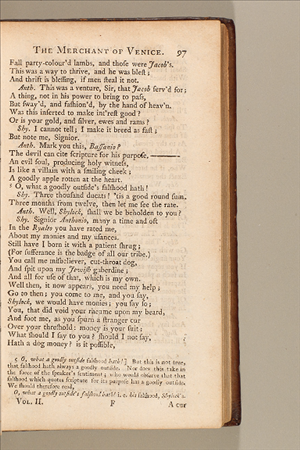 THE MERCHANT OF VENICE. 97
Fall party-colour'd lambs, and those were Jacob's.
This was a way to thrive, and he was blest;
And thrift is blessing, if men steal it not.
Anth. This was a venture, Sir, that Jacob serv'd for;
A thing, not in his power to bring to pass,
But sway'd, and fashion'd, by the hand of heav'n.
Was this inserted to make int'rest good?
Or is your gold, and silver, ewes and rams?
Shy. I cannot tell; I make it breed as fast;
But note me, Signior.
Anth. Mark you this, Bassanio?
The devil can cite scripture for his purpose.
An evil soul, producing holy witness,
Is like a villain with a smiling cheek;
A goodly apple rotten at the heart.
O, what a goodly outside's falshood hath!
Shy. Three thousand ducats! 'tis a good round sum.
Three months from twelve, then let me see the rate.
Anth. Well, Shylock, shall we be beholden to you?
Shy. Signior Anthonio, many a time and oft
In the Ryalto you have rated me,
About my monies and my usances.
Still have I born it with a patient shrug;
(For sufferance is the badge of all our tribe.)
You call me misbeliever, cut-throat dog,
And spit upon my Jewish gaberdine;
And all for use of that, which is my own.
Well then, it now appears, you need my help;
Go to then; you come to me, and you say,
Shylock, we would have monies; you say so;
You, that did void your rheume upon my beard,
And foot me, as you spurn a stranger cur
Over your threshold: money is your suit;
What should I say to you? should I not say,
Hath a dog money? is it possible,
5 O, what a goodly outside falshood hath!] But this is not true,
that falshood hath always a goodly outside. Nor does this take in
the force of the speaker's sentiment; who would observe that that
falshood which quotes scripture for its purpose has a goodly outside.
We should therefore read,
O, what a goodly outside's falshood hath! i. e. his falshood, Shylock's.
VOL. II. F A cur